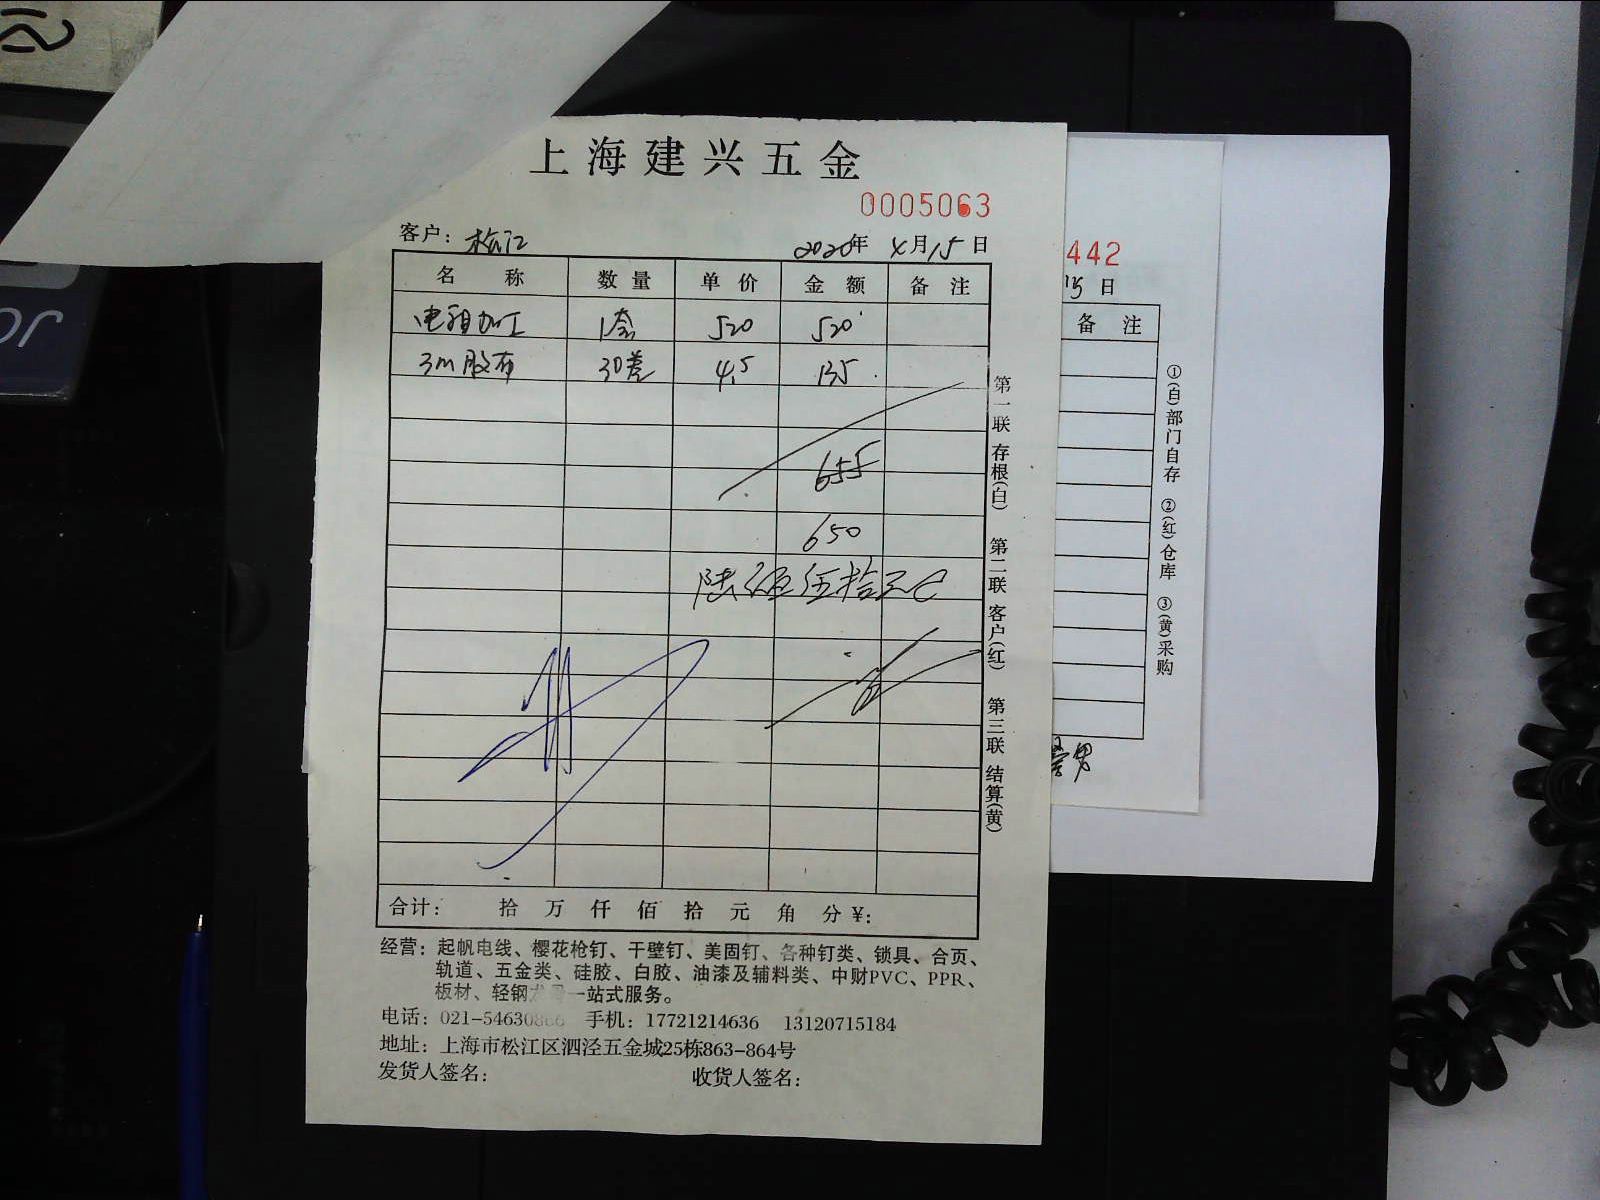 上海建兴五金
0005063
客户：松江 2020年 4月15日
名称 数量 单价 金额 备注
电箱加工 1套 520 520
3m胶布 30卷 4.5 135
655
650
陆佰伍拾元
合计： 拾 万 仟 佰 拾 元 角 分 ¥：
经营：起帆电线、樱花枪钉、干壁钉、美固钉、各种钉类、锁具、合页、
轨道、五金类、硅胶、白胶、油漆及辅料类、中财PVC、PPR、
板材、轻钢龙骨一站式服务。
电话：021-54630866 手机：17721214636 13120715184
地址：上海市松江区泗泾五金城25栋863-864号
发货人签名： 收货人签名：
第一联 存根(白) 第二联 客户(红) 第三联 结算(黄)
442
15日
备注
①(白)部门自存 ②(红)仓库 ③(黄)采购